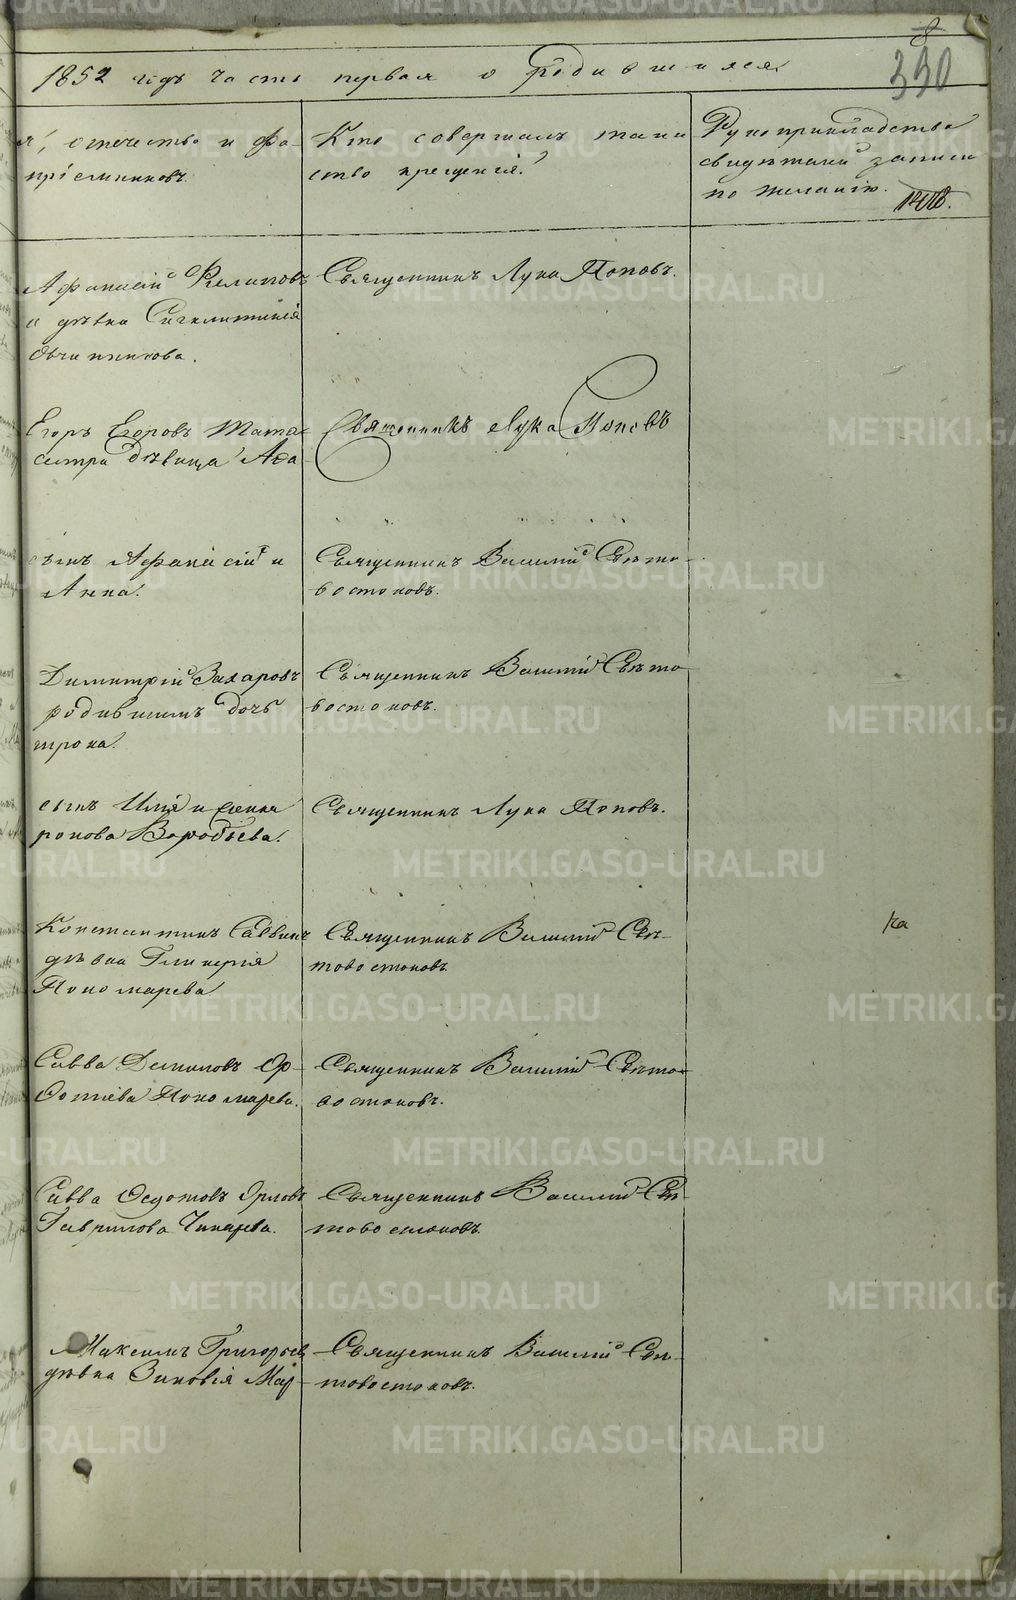 8
330
1852 годъ часть первая о родившихся.
я, отечество и фа-
пріемниковъ.
Кто совершалъ таин
ство крещенія.
Рукоприкладство
свидѣтелей записи
по желанію.
Афанасій Филиповъ
и дѣвка Сигклитикія
Овчинникова.
Священникъ Лука Поповъ.
Егоръ Егоровъ
сестра дѣвица
Священникъ Лука Поповъ
сынъ Афанасій и
Анна.
Священникъ Василій Свѣто-
востоковъ.
Димитрій Захаровъ
родившимъ дочь
трона.
Священникъ Василій Свѣто
востоковъ.
сынъ Илія и
ронова Воробьева.
Священникъ Лука Поповъ.
Константинъ Саввинъ
дѣвка Гликерія
Пономарева
Священникъ Василій Свѣ-
товостоковъ
ка
Савва Даниловъ Ор-
Фотіева Пономарева.
Священникъ Василій Свѣто-
востоковъ.
Савва Федотовъ Орловъ
Гаврилова Чикарева.
Священникъ Василій Свѣ-
товостоковъ.
Максимъ Григорьев
дѣвка Зиновія Мар-
Священникъ Василій Свѣ-
товостоковъ.
METRIKI.GASO-URAL.RU